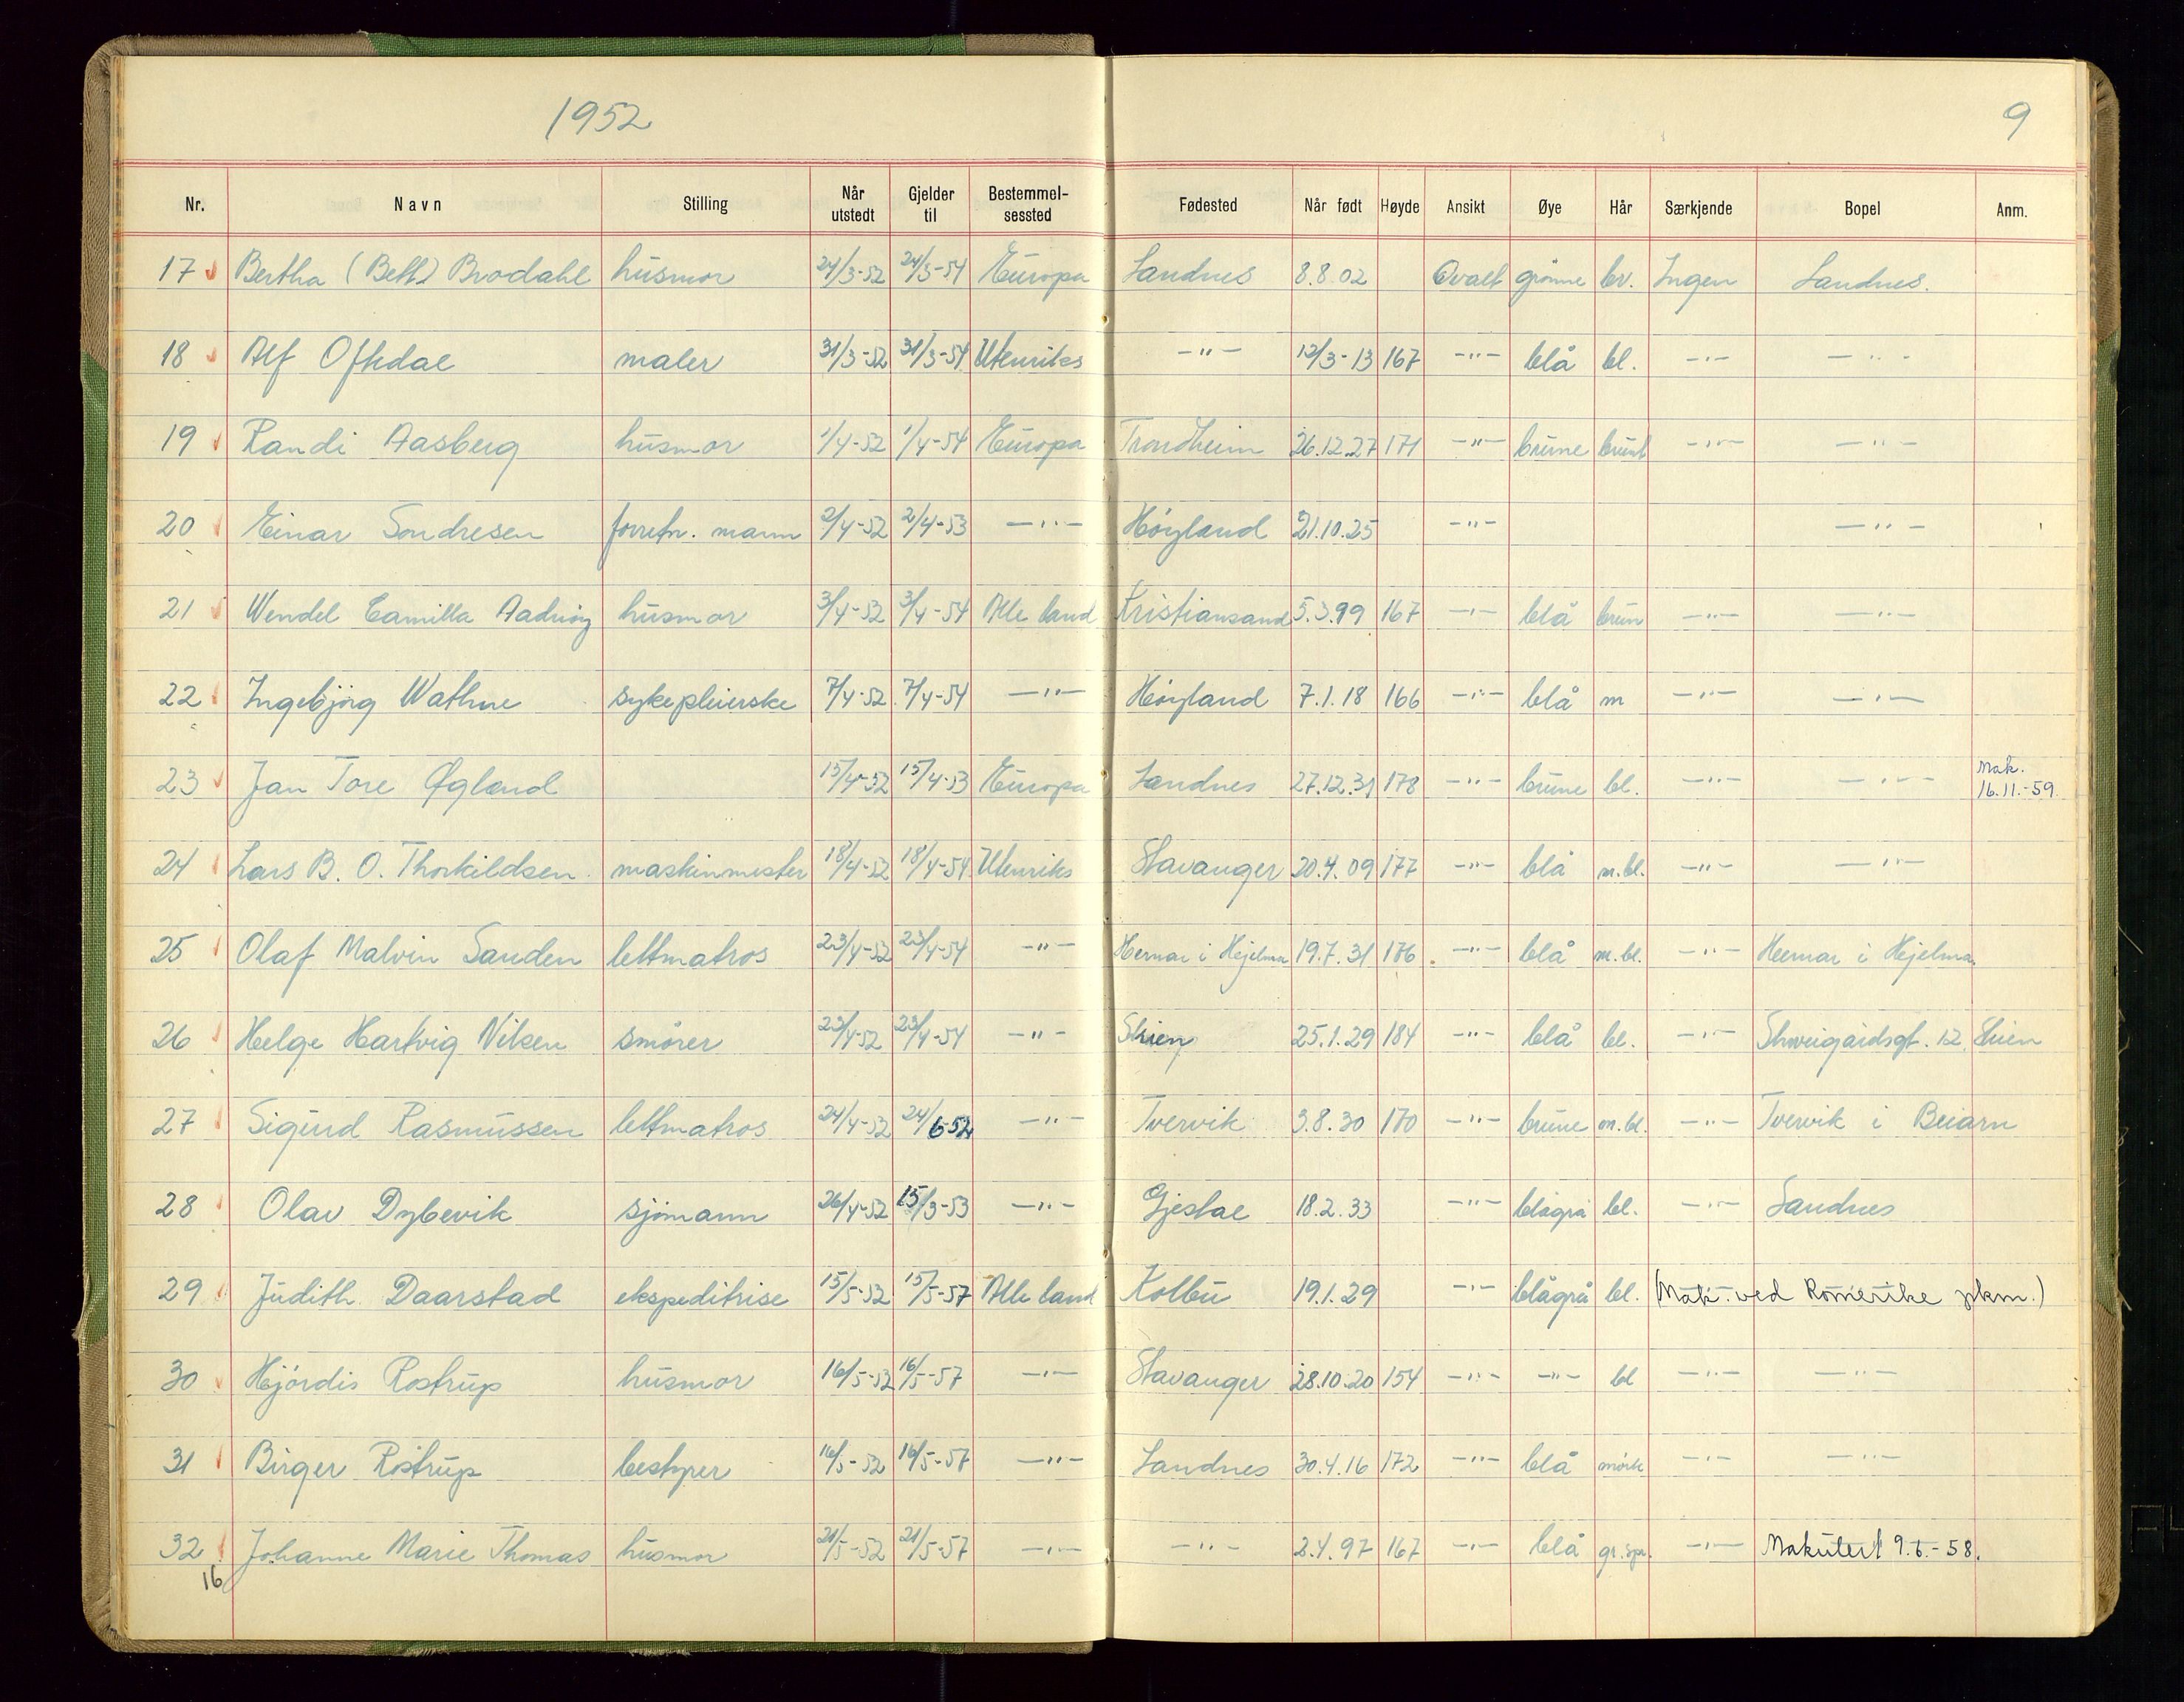 1952
9
Nr. Navn Stilling Når utstedt Gjelder til Bestemmel-sessted Fødested Når født Høyde Ansikt Øye Hår Særkjende Bopel Anm.
17 Bertha (Beth) Brodahl husmor 24/3-52 24/3-54 Europa Sandnes 8.8.02 Ovalt grønne br. Ingen Sandnes.
18 Alf Oftedal maler 31/3-52 31/3-54 Utenriks -"- 12/3-13 167 -"- blå bl. -"- -"-
19 Randi Aasberg husmor 1/4-52 1/4-54 Europa Trondheim 26.12.27 171 -"- brune brunt -"- -"-
20 Einar Sondresen forretn. mann 2/4-52 2/4-53 -"- Høyland 21.10.25 -"- -"-
21 Wendel Camilla Aadnøy husmor 3/4-52 3/4-54 Alle land Kristiansand 5.3.99 167 -"- blå brun -"- -"-
22 Ingebjörg Wathne sykepleierske 7/4-52 7/4-54 -"- Høyland 7.1.18 166 -"- blå m -"- -"-
23 Jan Tore Øgland 15/4-52 15/4-53 Europa Sandnes 27.12.31 178 -"- brune bl. -"- -"- Mak. 16.11.-59
24 Lars B. O. Thorkildsen maskinmester 18/4-52 18/4-54 Utenriks Stavanger 20.4.09 177 -"- blå m.bl. -"- -"-
25 Olaf Malvin Sanden lettmatros 23/4-52 23/4-54 -"- Hernar i Hejelma 19.7.31 176 -"- blå m.bl. -"- Hernar i Hejelma
26 Helge Hartvig Nilsen smører 23/4-52 23/4-54 -"- Skien 25.1.29 184 -"- blå bl. -"- Schweigaardsgt. 12 Skien
27 Sigurd Rasmussen lettmatros 24/4-52 24/6-52 -"- Tvervik 3.8.30 170 -"- brune m.bl. -"- Tvervik i Beiarn
28 Olav Dybevik sjømann 26/4-52 15/3-53 -"- Gjestal 18.2.33 -"- blågrå bl. -"- Sandnes
29 Judith Daarstad ekspeditrise 15/5-52 15/5-57 Alle land Kolbu 19.1.29 -"- blågrå bl. (Mak. ved Romerike pkm.)
30 Hjördis Rostrup husmor 16/5-52 16/5-57 -"- Stavanger 28.10.20 154 -"- -"- bl -"- -"-
31 Birger Rostrup bestyrer 16/5-52 16/5-57 -"- Sandnes 30.4.16 172 -"- blå mørk -"- -"-
32 Johanne Marie Thomas husmor 21/5-52 21/5-57 -"- -"- 2.4.97 167 -"- blå gr.spr. -"- Makulert 9.6.-58.
16